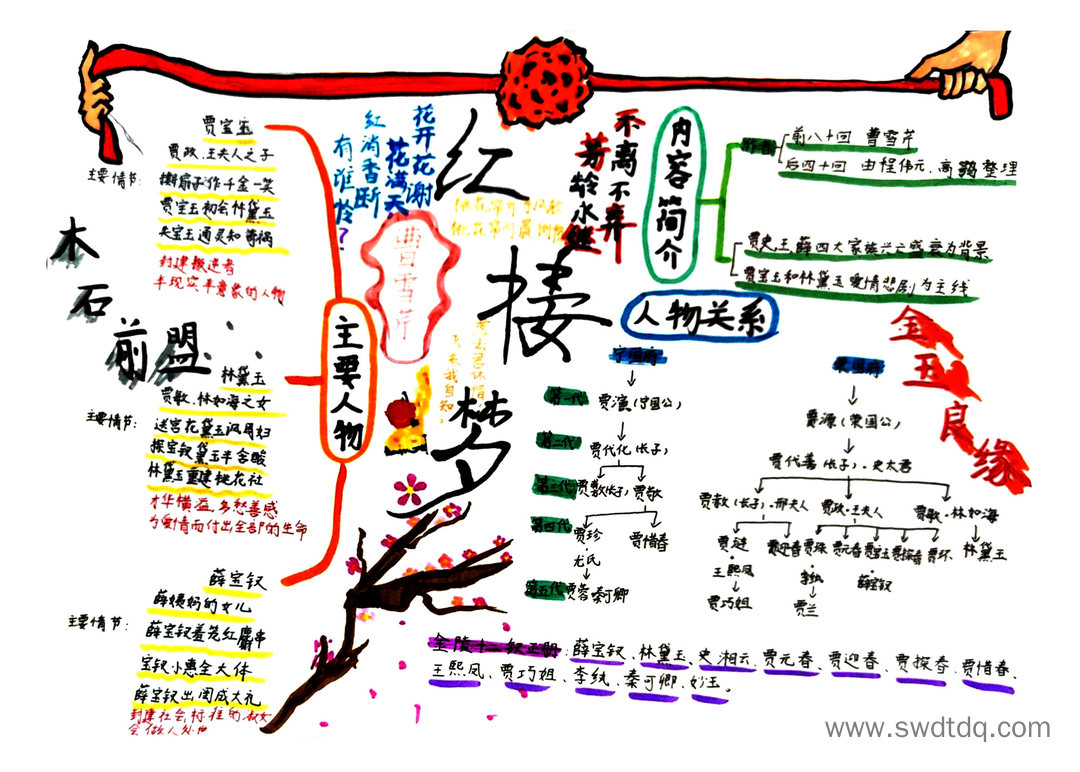 红
楼
梦
曹雪芹
花开花谢
花满天
红消香断
有谁怜?
不离不弃
芳龄永继
木
石
前盟
金玉良缘
主要人物
贾宝玉
贾政、王夫人之子
主要情节:
撕扇子作千金一笑
贾宝玉初会林黛玉
封建叛逆者
半现实半意象的人物
林黛玉
贾敏、林如海之女
主要情节:
送宫花黛玉讽周妇
探宝钗黛玉半含酸
林黛玉重建桃花社
才华横溢、多愁善感
为爱情而付出全部的生命
薛宝钗
薛姨妈的女儿
主要情节:
薛宝钗羞笼红麝串
宝钗小惠全大体
薛宝钗出闺成大礼
封建社会标准的淑女
会做人处世
内容简介
作者
前八十回 曹雪芹
后四十回 由程伟元、高鹗整理
贾史王薛四大家族兴亡盛衰为背景
贾宝玉和林黛玉爱情悲剧为主线
人物关系
宁国府
荣国府
第一代
贾演(宁国公)
贾源(荣国公)
第二代
贾代化(长子)
贾代善(长子)·史太君
第三代
贾敷(长子)
贾敬
贾赦(长子)·邢夫人
贾政·王夫人
贾敏·林如海
第四代
贾珍
贾惜春
尤氏
贾琏
贾迎春
贾珠
贾元春
贾宝玉
贾探春
贾环
林黛玉
王熙凤
李纨
薛宝钗
第五代
贾蓉
秦可卿
贾巧姐
贾兰
金陵十二钗正册:薛宝钗、林黛玉、史湘云、贾元春、贾迎春、贾探春、贾惜春、
王熙凤、贾巧姐、李纨、秦可卿、妙玉。
www.swdtdq.com